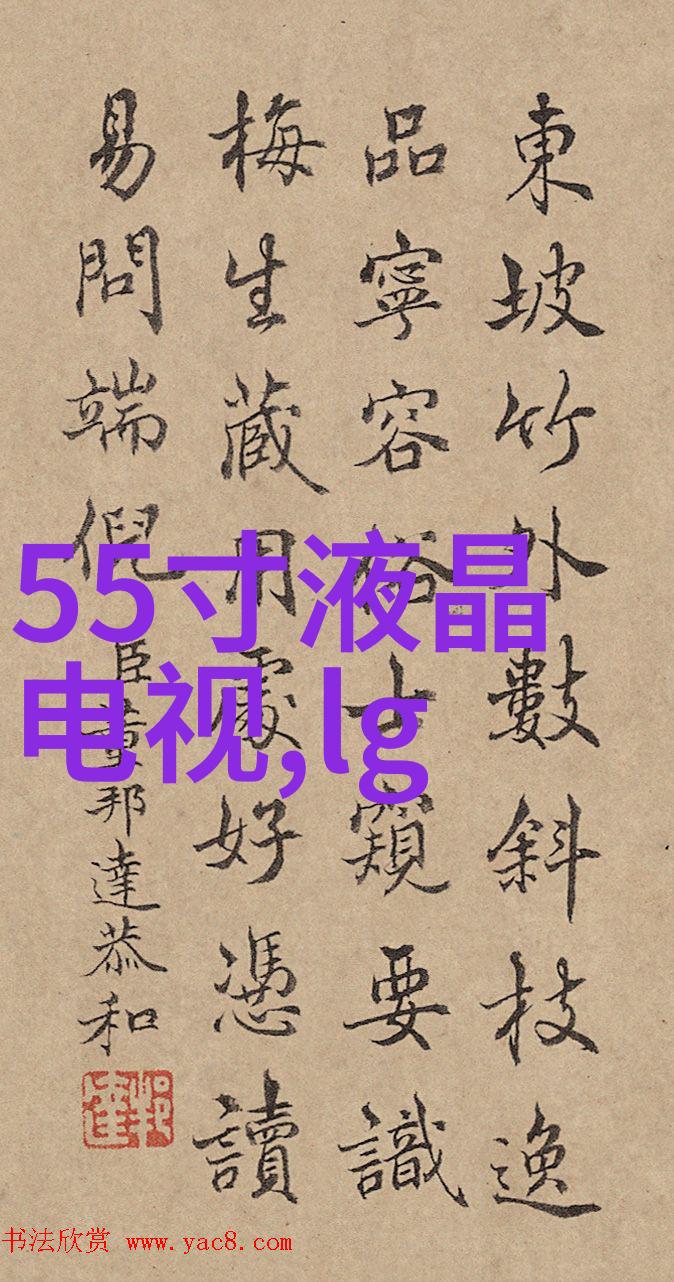 東坡竹外數斜枝逸
品寧容俗士窺要識
梅生藏用處好憑讀
易問端倪
臣董邦達恭和
邦達
55寸液晶
电视,lg
书法欣赏 www.yac8.com